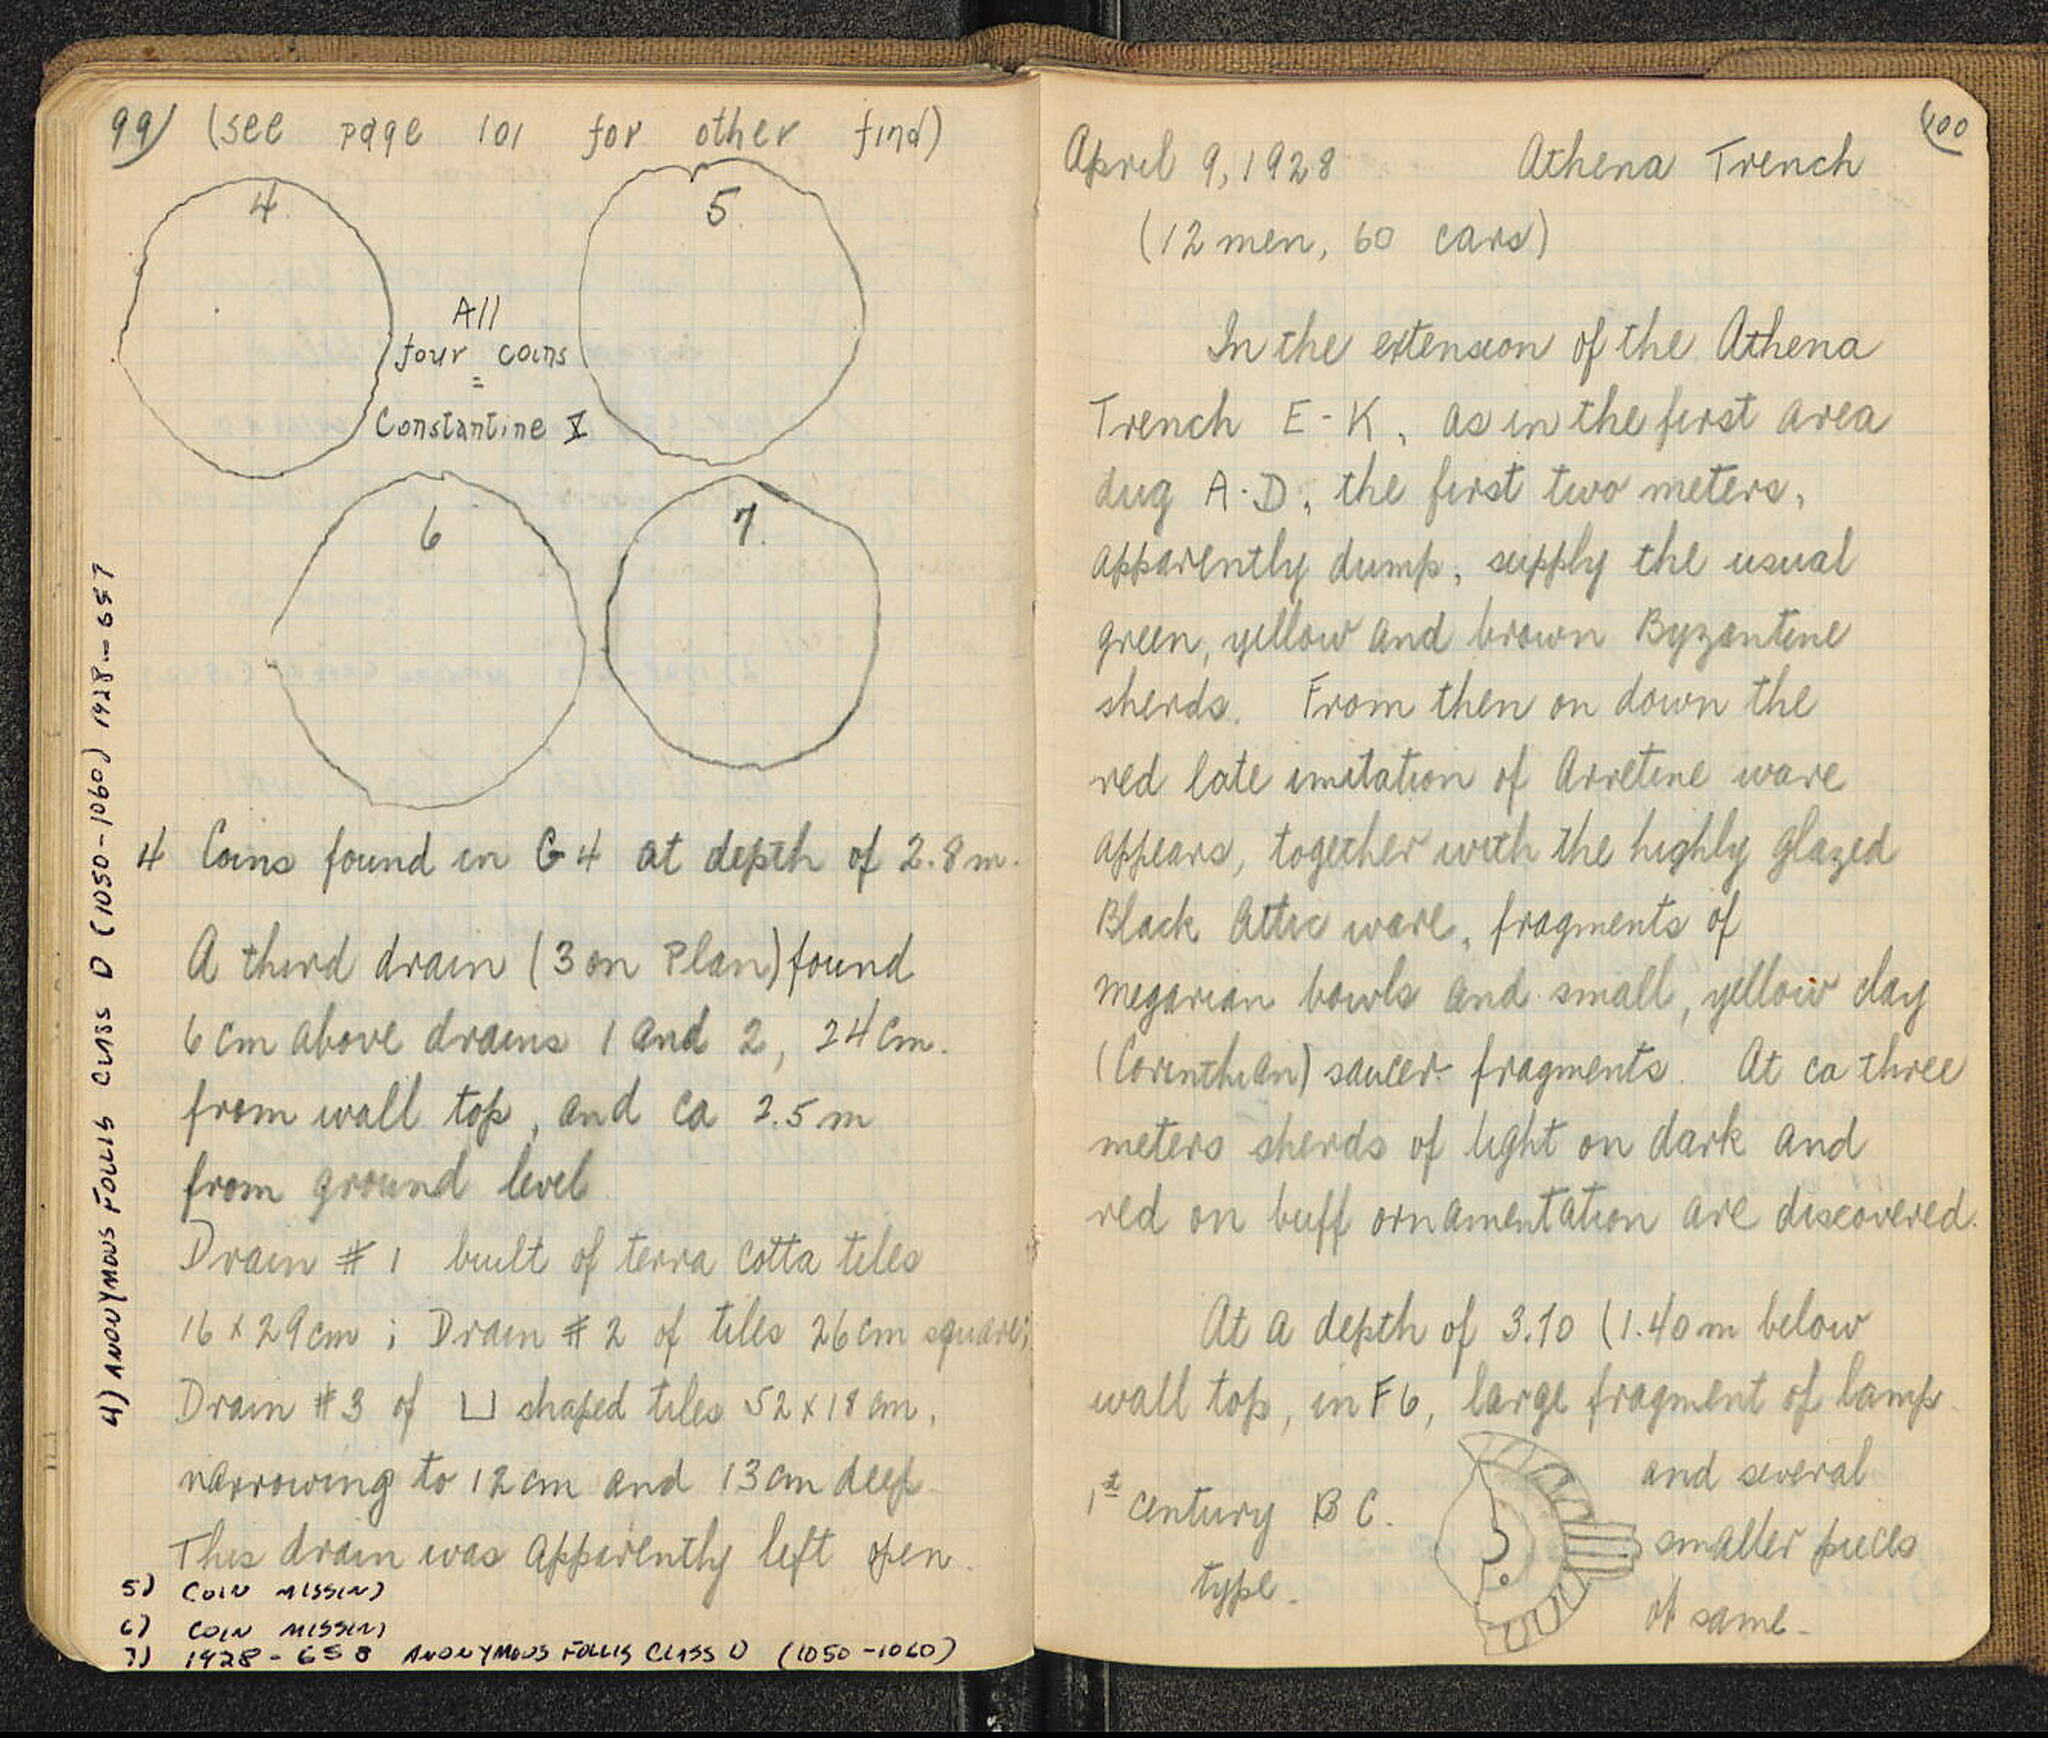 99) (see page 101 for other find)
4.
5.
All
four coins
=
Constantine X
6
7.
4 Coins found in G4 at depth of 2.8m.
A third drain (3 on Plan) found
6 cm above drains 1 and 2, 24 cm.
from wall top, and ca 2.5 m
from ground level
Drain #1 built of terra cotta tiles
16 x 29 cm; Drain #2 of tiles 26 cm square;
Drain #3 of ⊔ shaped tiles 52 x 18 cm,
narrowing to 12 cm and 13 cm deep.
This drain was apparently left open.
5) COIN MISSING
6) COIN MISSING
7) 1928-658 ANONYMOUS FOLLIS CLASS D (1050-1060)
4) ANONYMOUS FOLLIS CLASS D (1050-1060) 1928-657
(100
April 9, 1928 Athena Trench
(12 men, 60 cars)
In the extension of the Athena
Trench E-K, as in the first area
dug A-D, the first two meters,
apparently dump, supply the usual
green, yellow and brown Byzantine
sherds. From then on down the
red late imitation of Arretine ware
appears, together with the highly glazed
Black Attic ware, fragments of
megarian bowls and small, yellow clay
(Corinthian) saucer fragments. At ca three
meters sherds of light on dark and
red on buff ornamentation are discovered.
At a depth of 3.10 (1.40 m below
wall top, in F6, large fragment of lamp
and several
1st century B C.
smaller pieces
type.
of same.